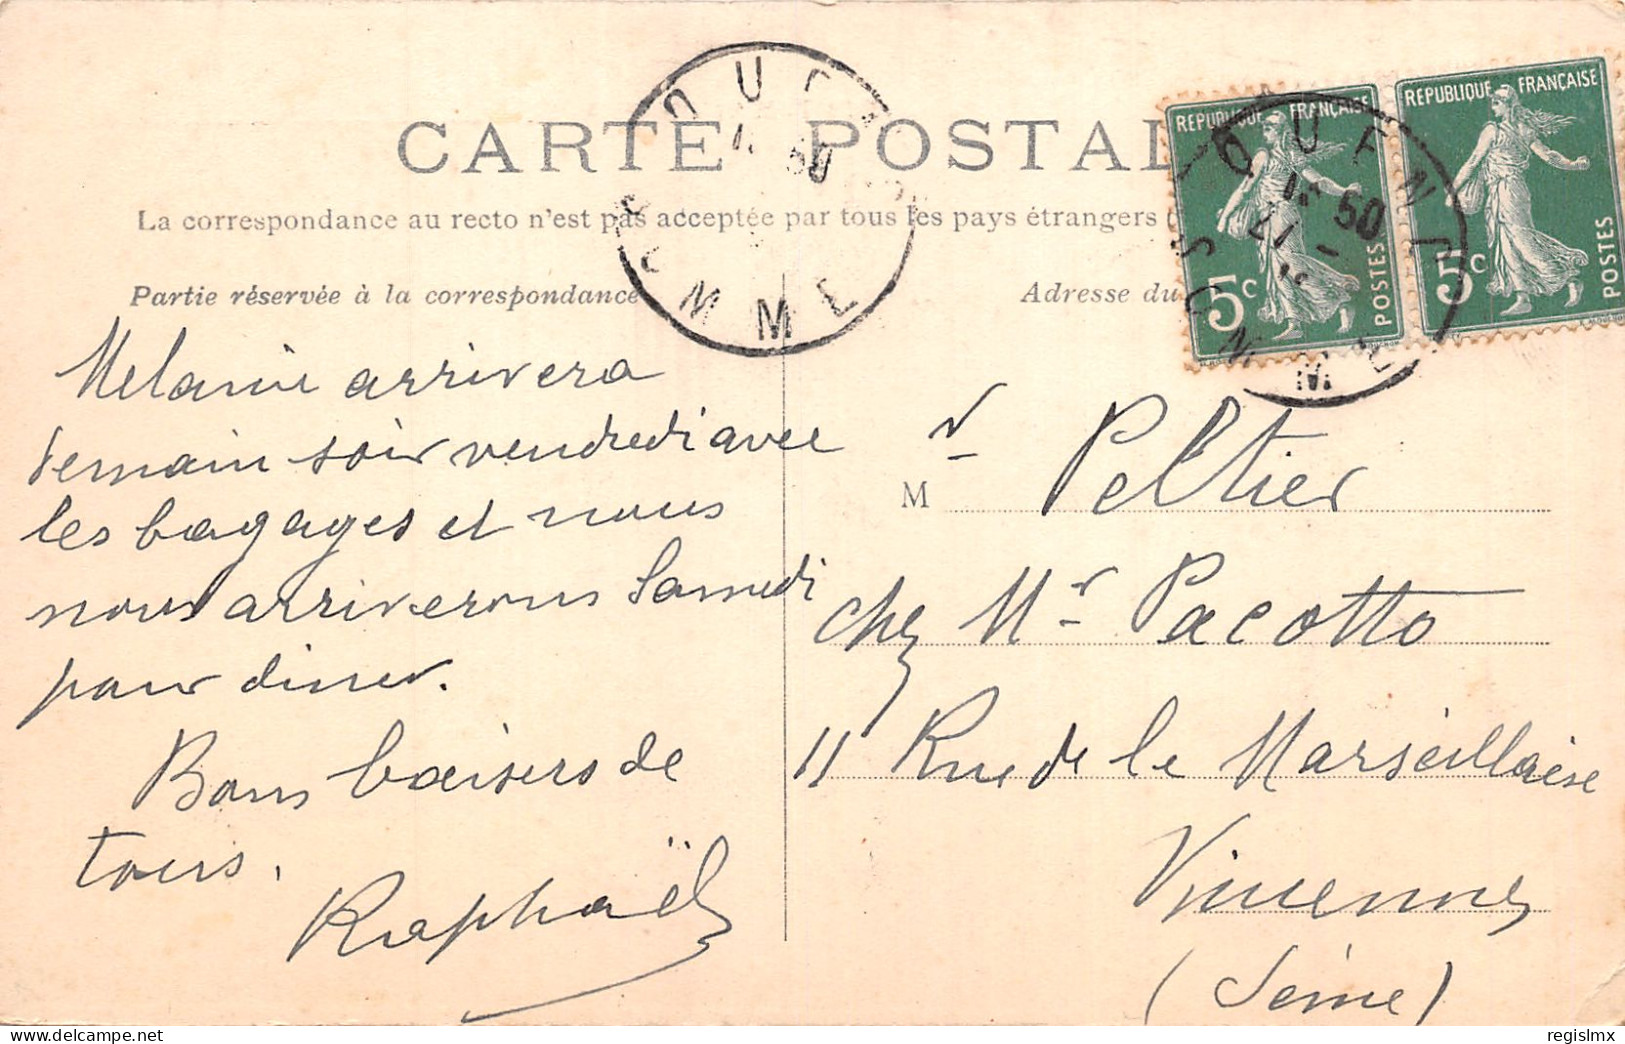 CARTE POSTAL
La correspondance au recto n'est pas acceptée par tous les pays étrangers
Partie réservée à la correspondance
Adresse du
REPUBLIQUE FRANÇAISE
5c
POSTES
REPUBLIQUE FRANÇAISE
5c
POSTES
Melanie arrivera
demain soir vendredi avec
les bagages et nous
nous arriverons Samedi
pour diner.
Bons baisers de
tous.
Raphaël
M r Peltier
chez Mr Pacotto
11 Rue de la Marseillaise
Vincennes
(Seine)
regislmx